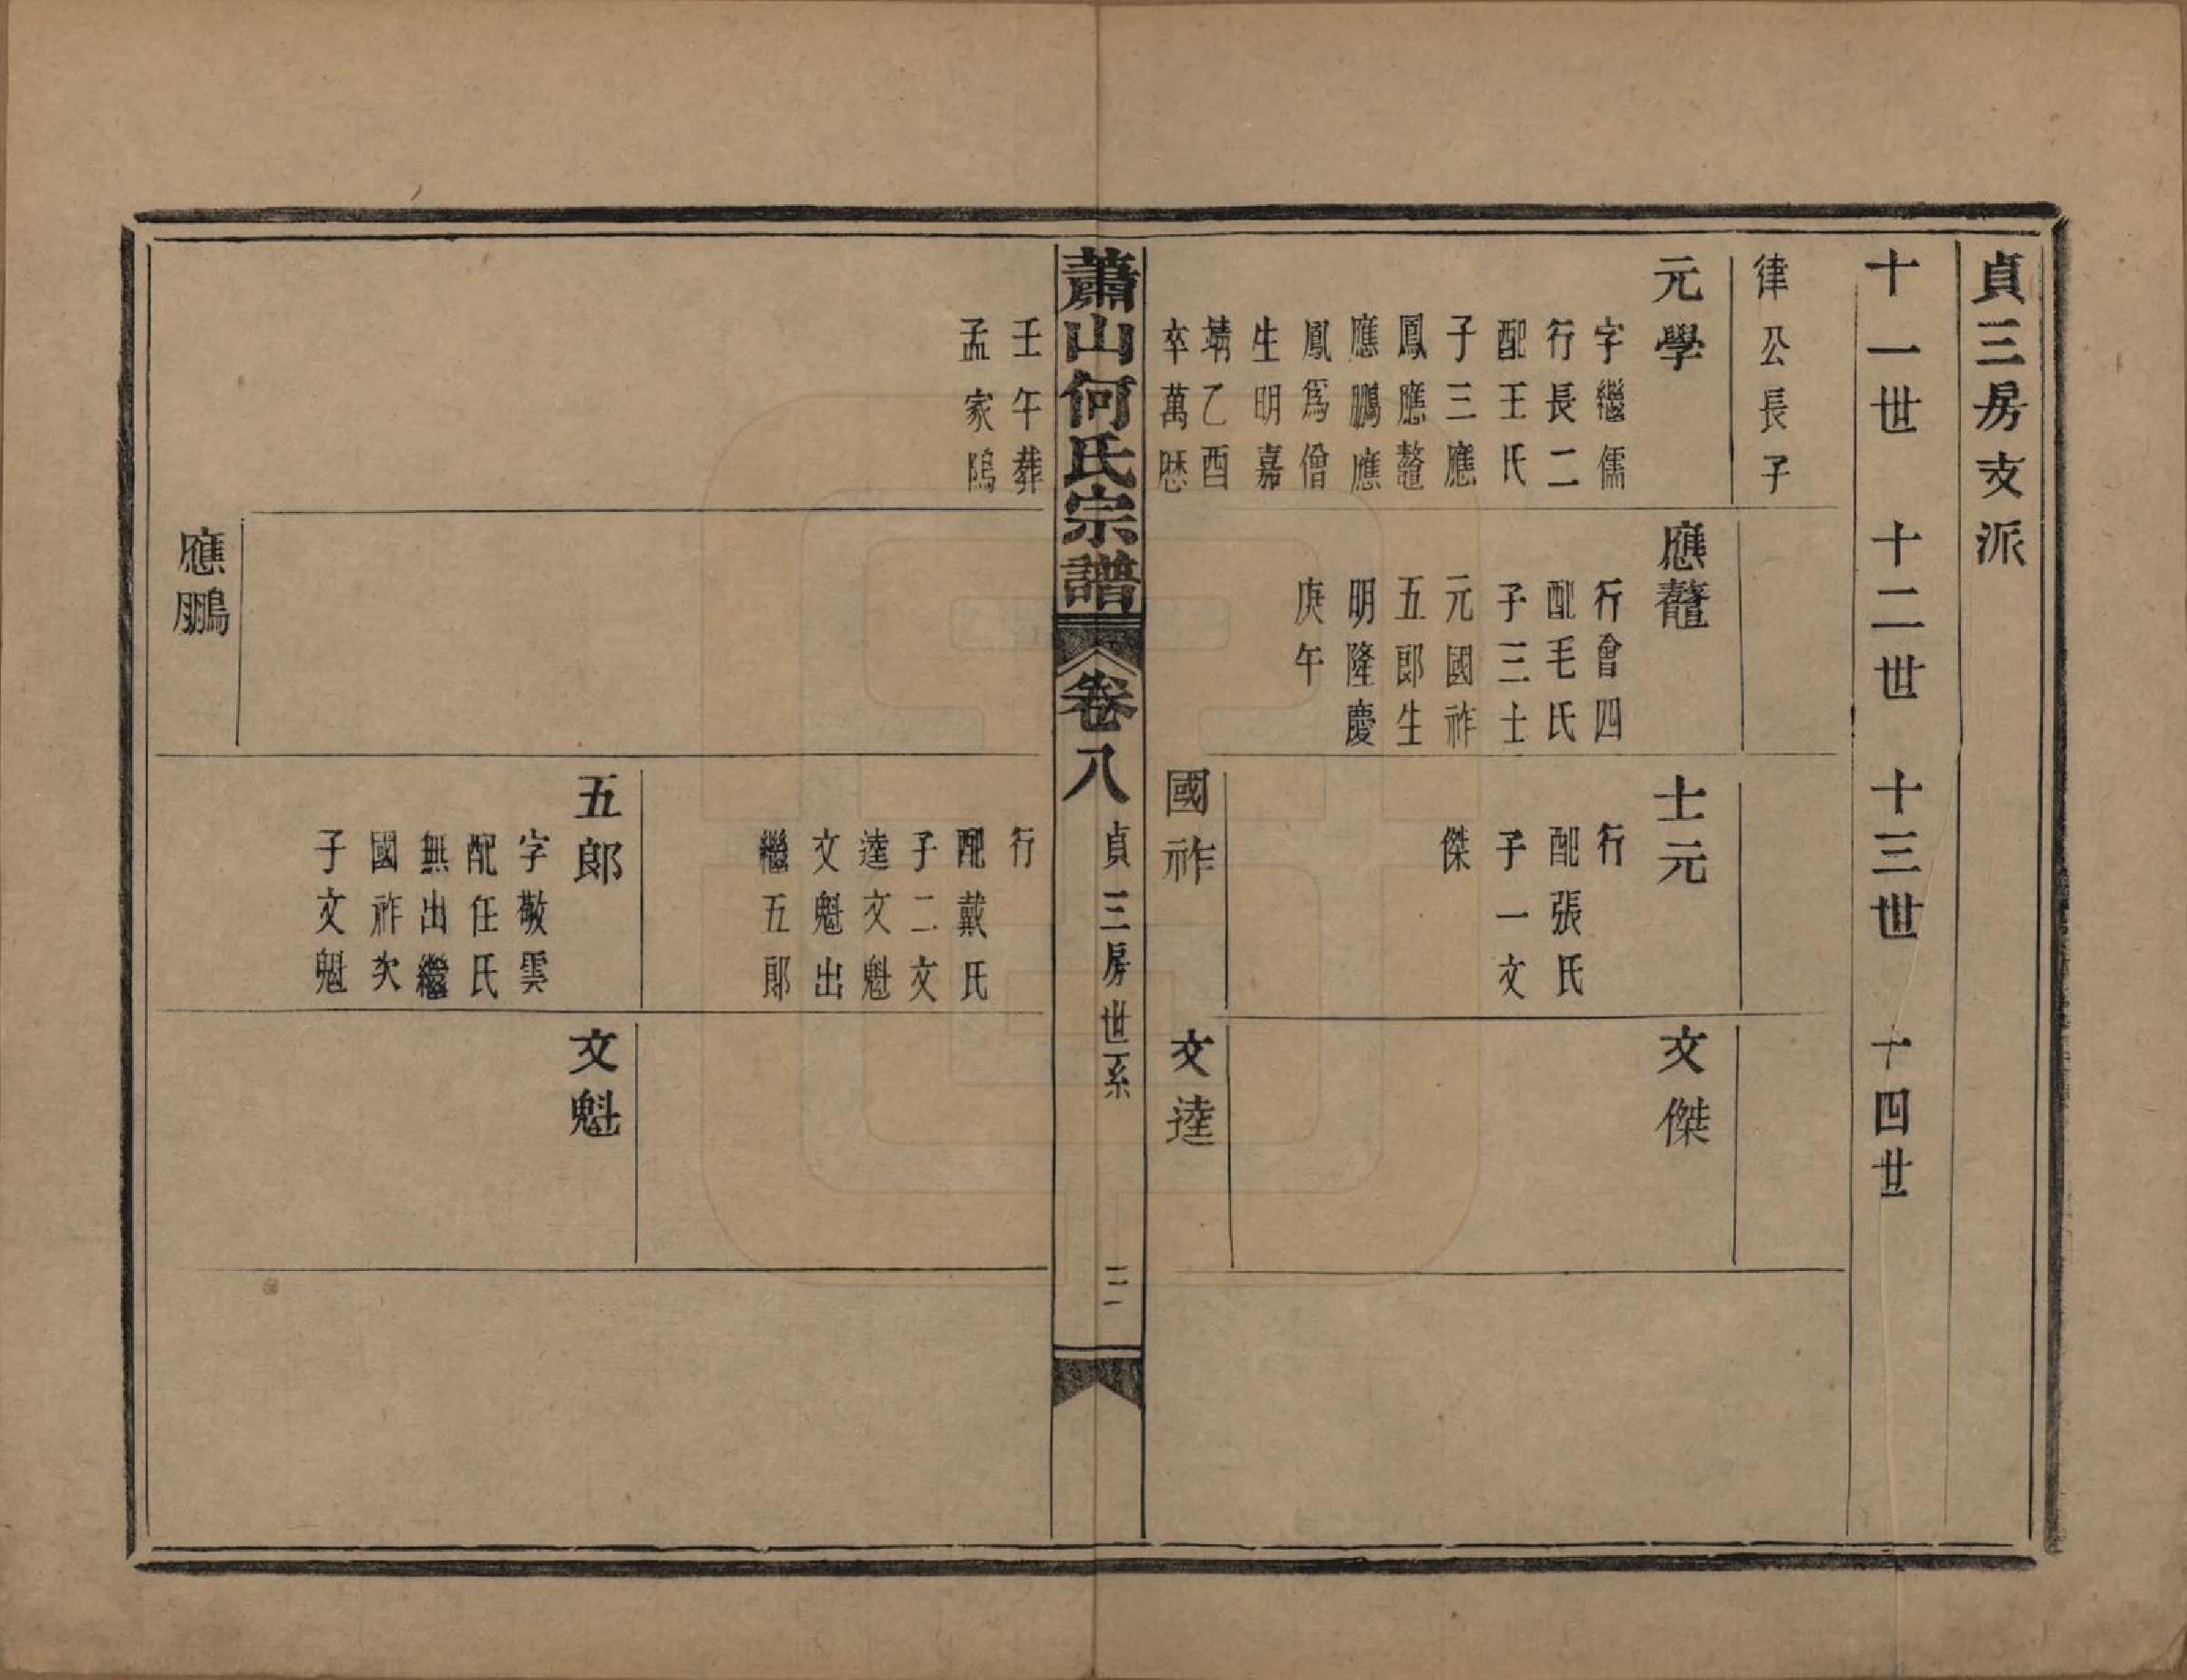 貞三房支派
十一世　十二世　十三世　十四世
律公長子
元學
字繼儒
行長二
配王氏
子三應
鳳應鼇
應鵬應
鳳爲僧
生明嘉
靖乙酉
卒萬歴
應鼇
行會四
配毛氏
子三士
元國祚
五郎生
明隆慶
庚午
士元
行
配張氏
子一文
傑
國祚
文傑
文逵
蕭山何氏宗譜
卷八
貞三房世系
三
壬午葬
孟家隖
應鵬
行
配戴氏
子二文
逵文魁
文魁出
繼五郎
五郎
字敬雲
配任氏
無出繼
國祚次
子文魁
文魁